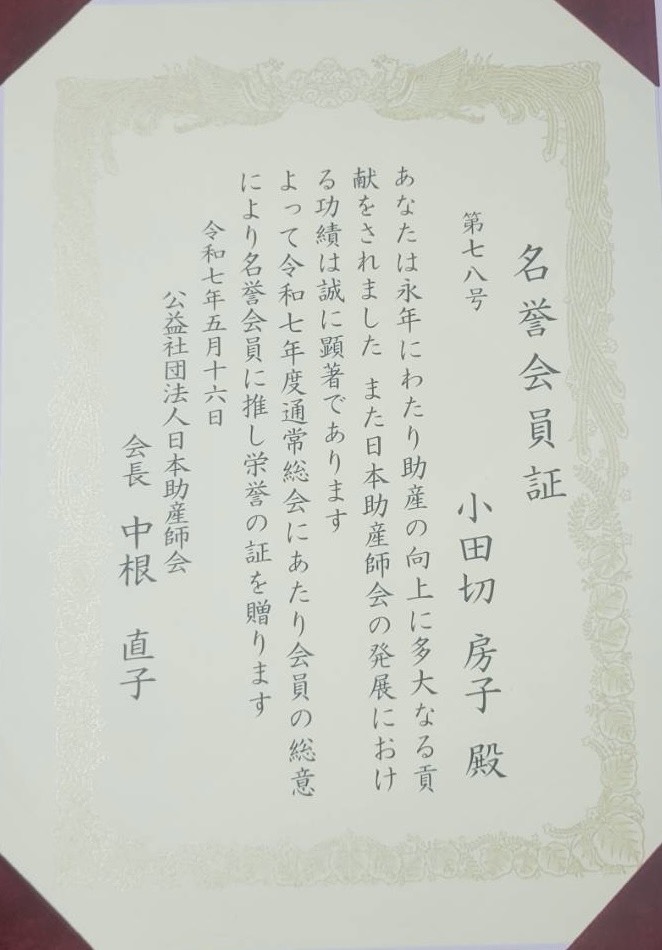 名誉会員証
第七八号
小田切 房子 殿
あなたは永年にわたり助産の向上に多大なる貢
献をされました また日本助産師会の発展におけ
る功績は誠に顕著であります
よって令和七年度通常総会にあたり会員の総意
により名誉会員に推し栄誉の証を贈ります
令和七年五月十六日
公益社団法人日本助産師会
会長 中根 直子